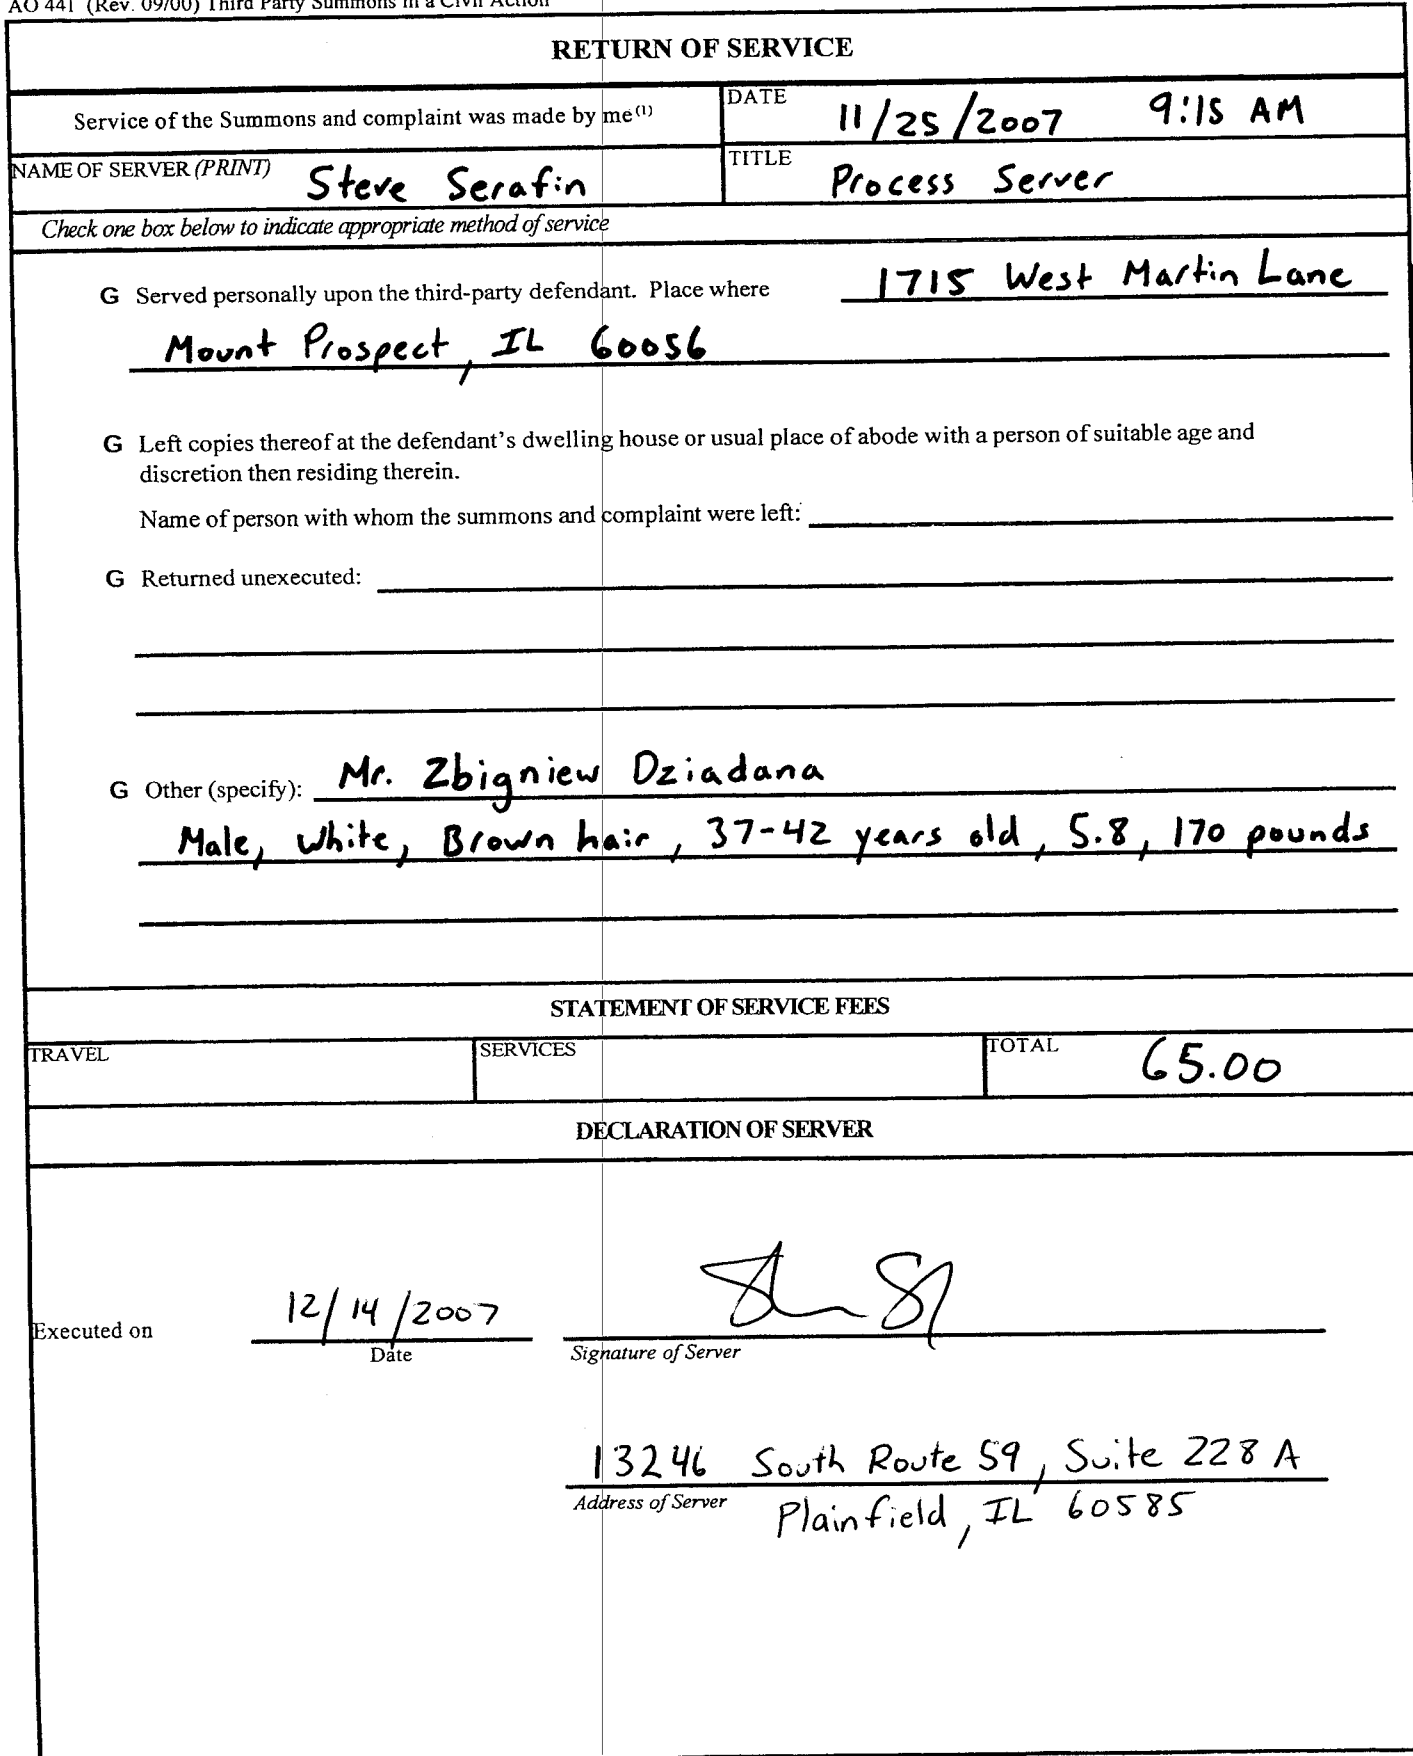 AO 441 (Rev. 09/00) Third Party Summons in a Civil Action
RETURN OF SERVICE
Service of the Summons and complaint was made by me(1)
DATE 11/25/2007 9:15 AM
NAME OF SERVER (PRINT) Steve Serafin
TITLE Process Server
Check one box below to indicate appropriate method of service
G Served personally upon the third-party defendant. Place where 1715 West Martin Lane
Mount Prospect, IL 60056
G Left copies thereof at the defendant's dwelling house or usual place of abode with a person of suitable age and
discretion then residing therein.
Name of person with whom the summons and complaint were left:
G Returned unexecuted:
G Other (specify): Mr. Zbigniew Dziadana
Male, White, Brown hair, 37-42 years old, 5.8, 170 pounds
STATEMENT OF SERVICE FEES
TRAVEL SERVICES TOTAL 65.00
DECLARATION OF SERVER
Executed on 12/14/2007
Date Signature of Server
13246 South Route 59, Suite 228 A
Address of Server Plainfield, IL 60585